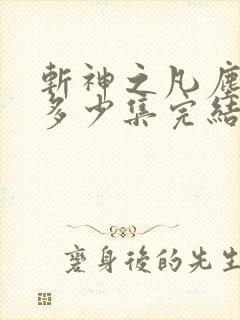 斬神之凡塵
多少集完結
麼身後的先生